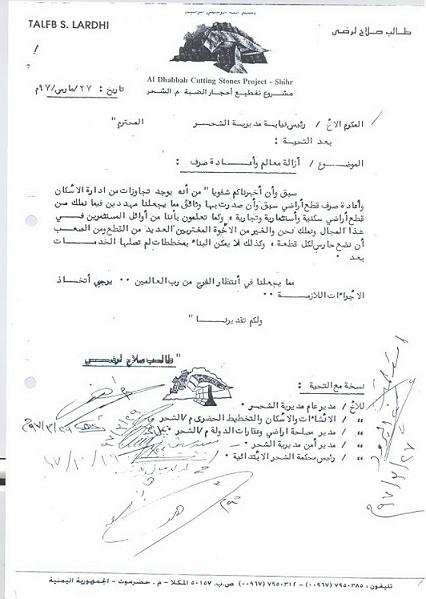 بسم الله الرحمن الرحيم
TALEB S. LARDHI
طالب صلاح لرضي
Al Dhabbah Cutting Stones Project - Shihr
مشروع تقطيع أحجار الضبة م. الشحر
تاريخ : ٢٧/مارس/٩٧م
المكرم الاخ / رئيس نيابة مديرية الشحر المحترم
بعد التحية :
الموضوع / أزالة معالم وأعادة صرف :
سبق وأن أخبرناكم شفويا" من أنه يوجد تجاوزات من ادارة الاسكان
وأعادة صرف قطع أراضي سبق وأن صدرت بها وثائق مما يجعلنا مهددين فيما نملك من
قطع أراضي سكنية وأستثمارية وتجارية ، وكما تعلمون بأننا من أوائل المستثمرين في
هذا المجال ونملك نحن والغير من الاخوة المغتربين العديد من القطع ومن الصعب
أن نضع حارس لكل قطعة ، وكذلك لا يمكن البناء بمخططات لم تصلها الخدمات
بعد ٠
مما يجعلنا في أنتظار الفرج من رب العالمين ٠٠ يرجي أتخاذ
الاجراءات اللازمة ٠٠
ولكم تقديرنا ،،
طالب صلاح لرضي
نسخة مع التحية :
للاخ / مدير عام مديرية الشحر ٠
،، / الانشاءات والاسكان والتخطيط الحضري م/الشحر
،، / مدير مصلحة اراضي وعقارات الدولة م/الشحر
،، / مدير أمن مديرية الشحر ٠
،، / رئيس محكمة الشحر الابتدائية ٠
٩٧/٣/٢٧
تليفون : ٧٩٥٠٣٨٥ (٠٠٩٦٧) – ٧٩٥٠٣١٢ (٠٠٩٦٧) ص.ب. ٥٠١٥٧ المكلا – م. حضرموت – الجمهورية اليمنية